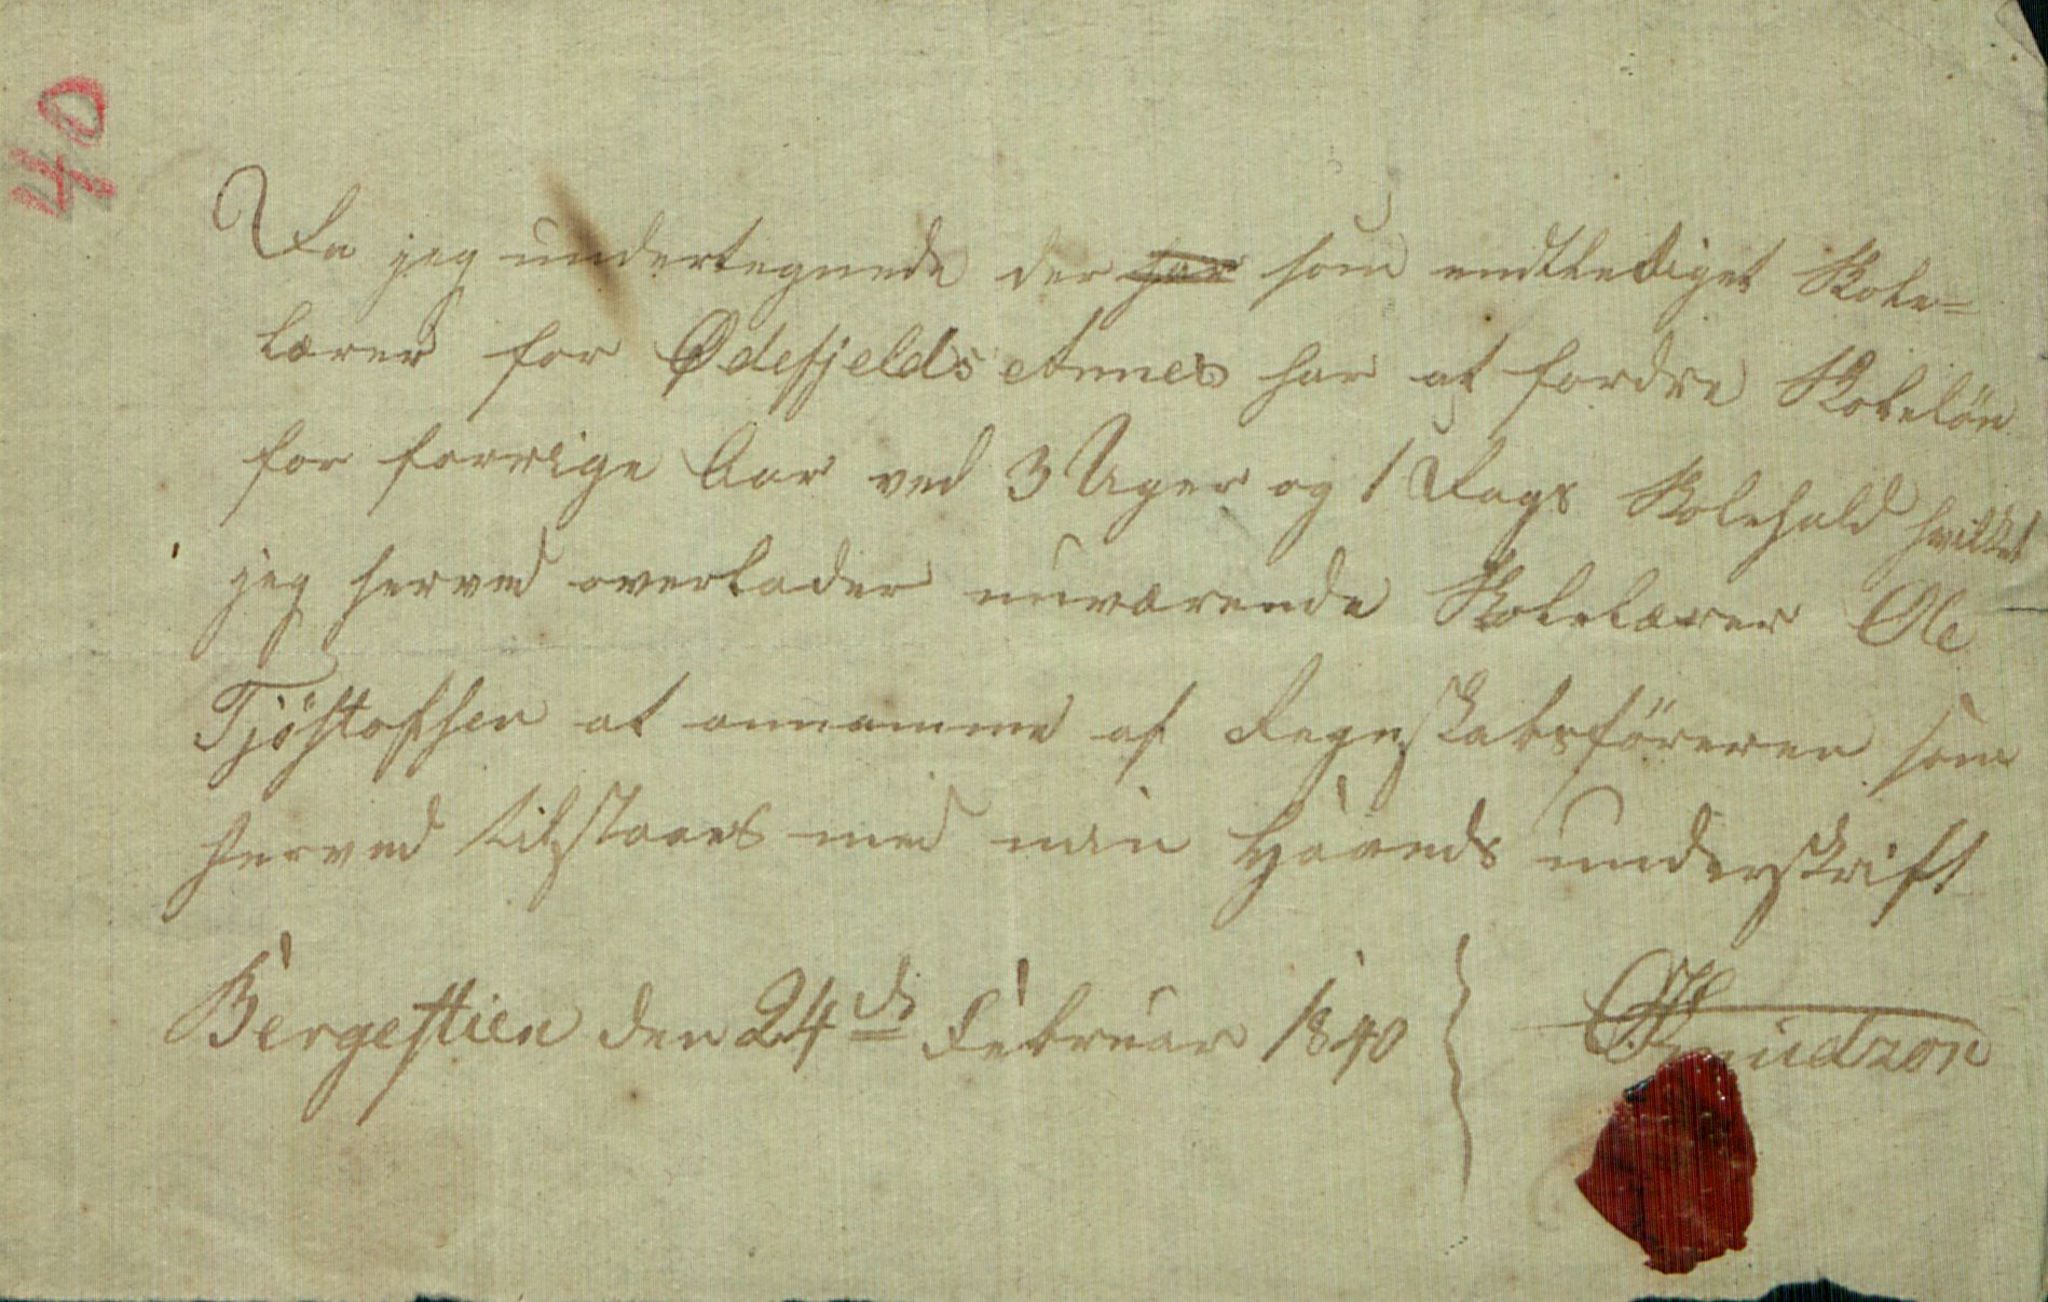 40
Da jeg undertegnede der har som endtlediget Skole=
lærer for Ødefjelds Annex har at fordre Skolelön
for forrige Aar ved 3 Uger og 1 Dags Skolehold hvilket
jeg herved overlader nuværende Skolelærer Ole
Tjöstofsen at annamme af Regnskabsföreren som
herved tilstaaes med min Haands underskrift
Bergestien den 24de Februar 1840 Knudzon